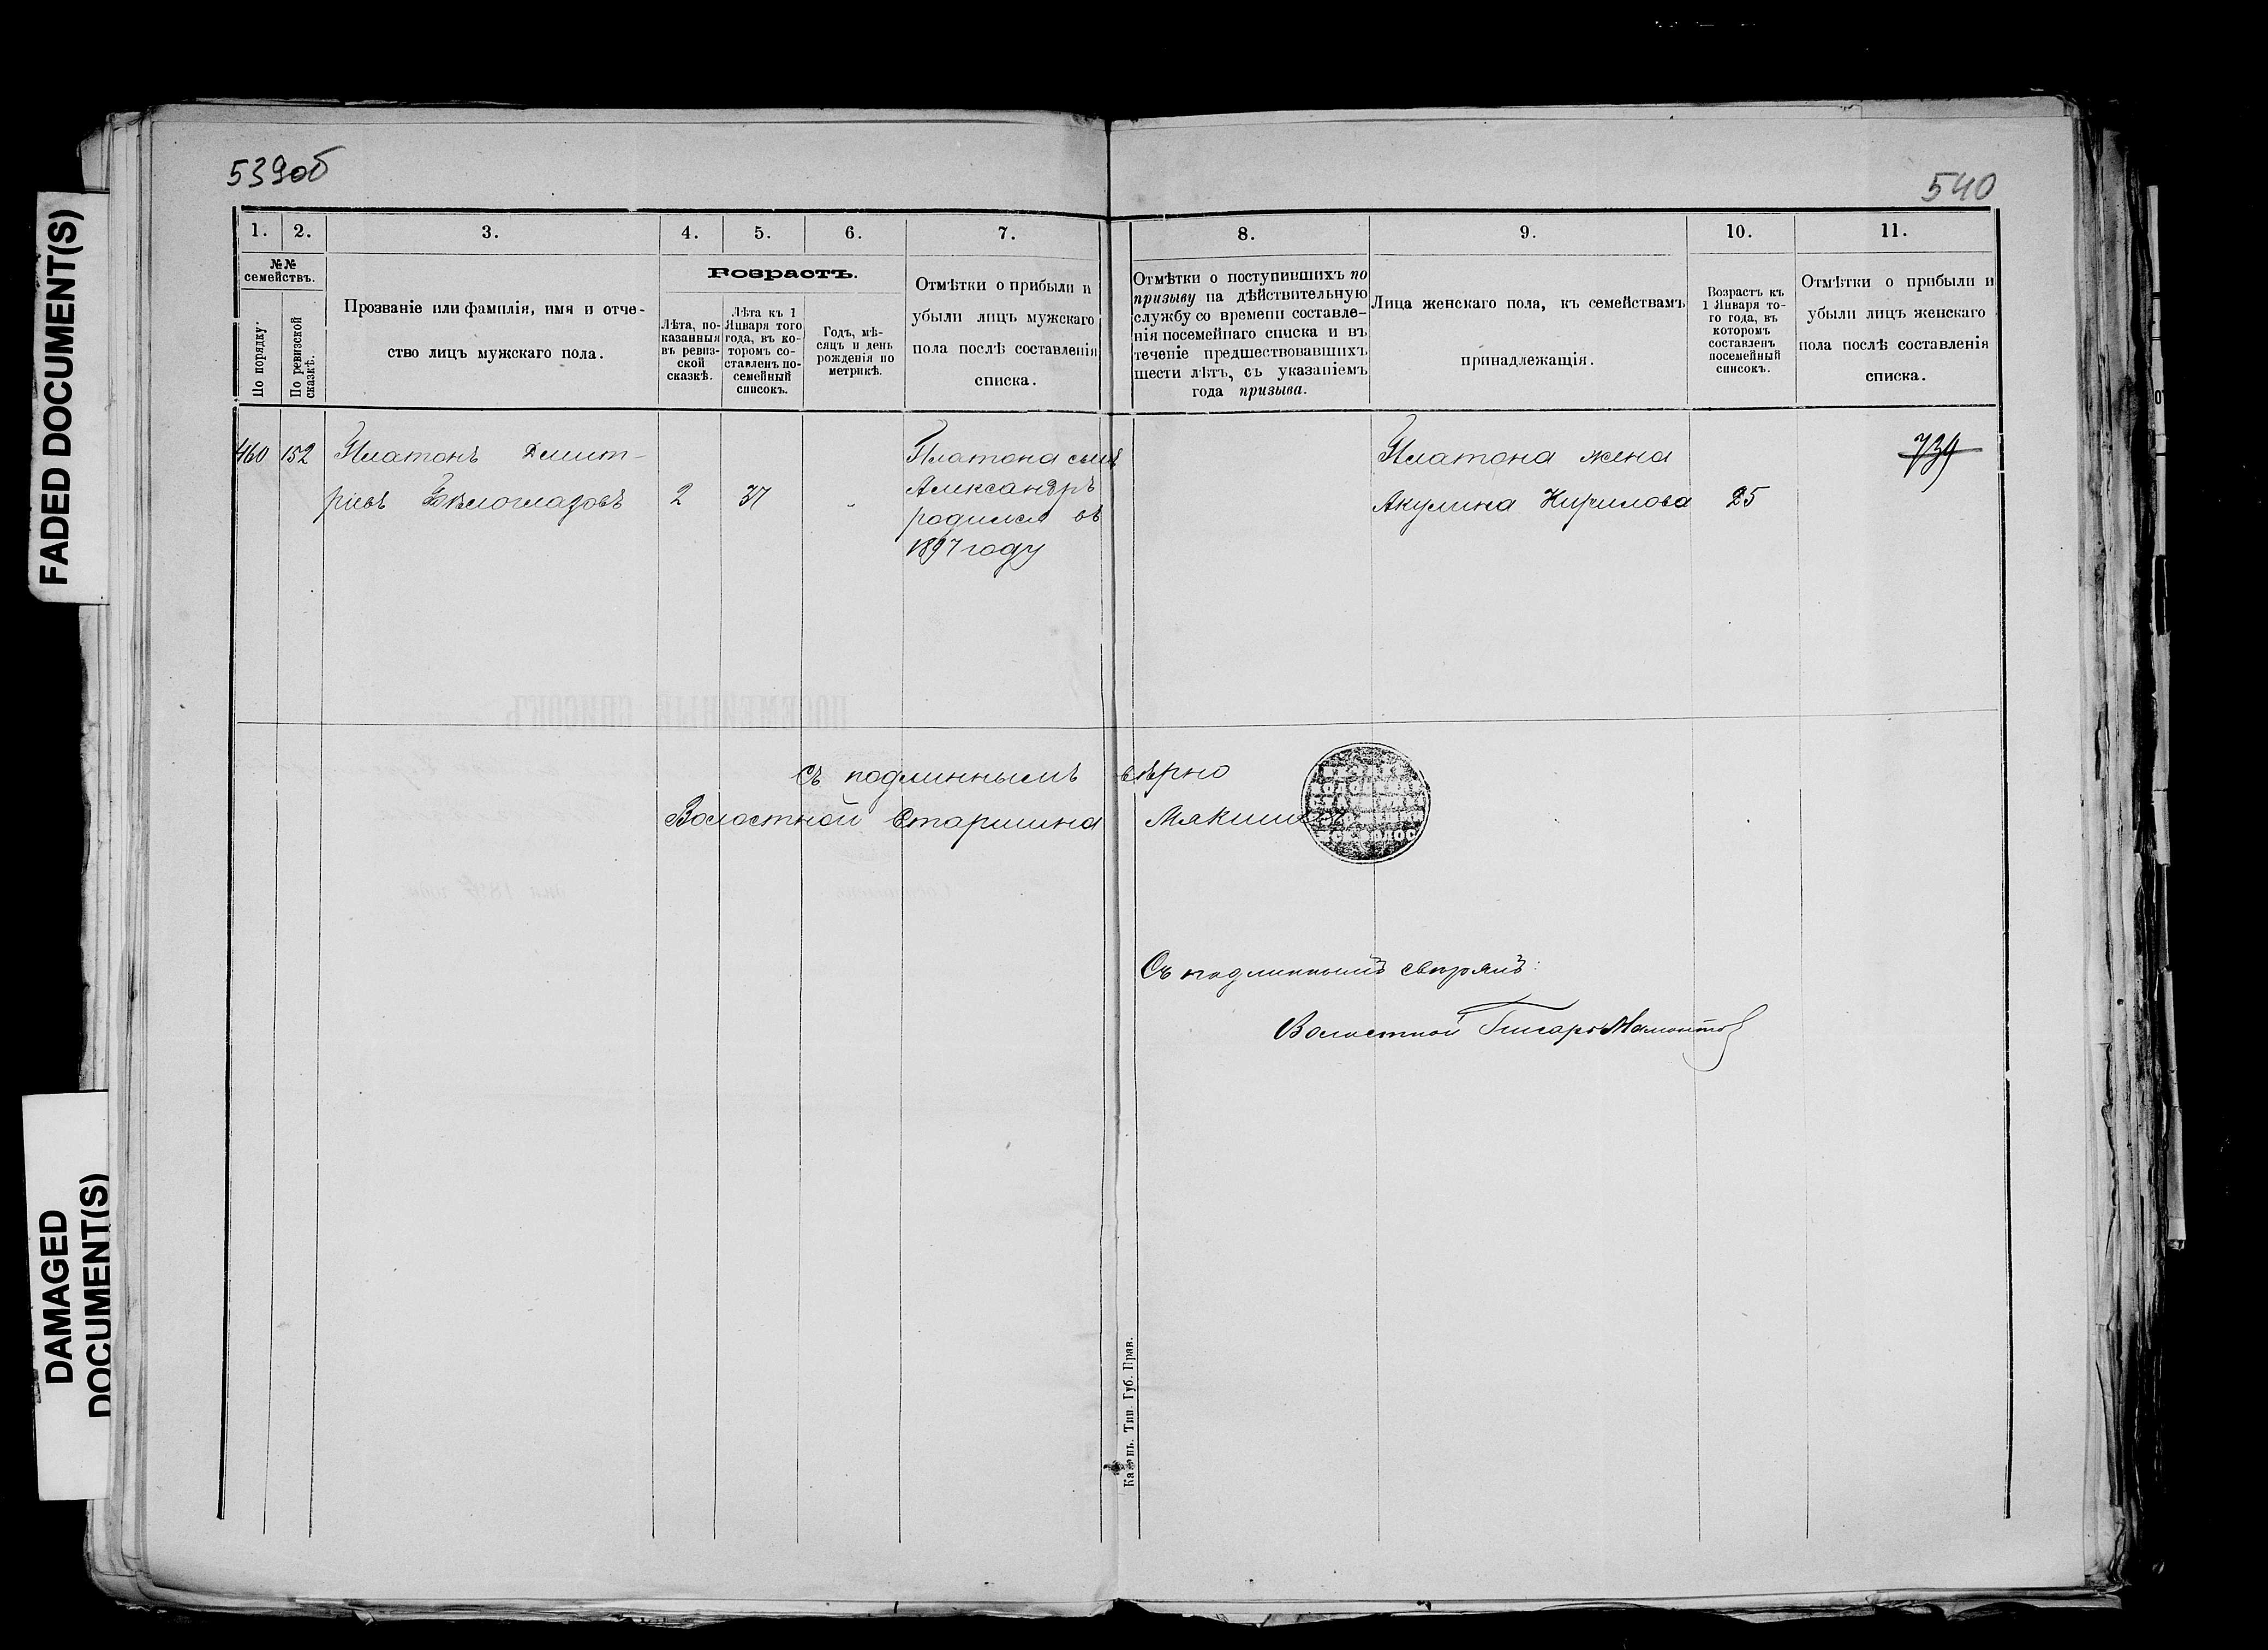 539об
540
1.
2.
3.
4.
5.
6.
7.
8.
9.
10.
11.
№№
семействъ.
По порядку.
По ревизской
сказкѣ.
Прозваніе или фамилія, имя и отче-
ство лицъ мужскаго пола.
Возрастъ.
Лѣта, по-
казанныя
въ ревиз-
ской
сказкѣ.
Лѣта къ 1
Января того
года, въ ко-
торомъ со-
ставленъ по-
семейный
списокъ.
Годъ, мѣ-
сяцъ и день
рожденія по
метрикѣ.
Отмѣтки о прибыли и
убыли лицъ мужскаго
пола послѣ составленія
списка.
Отмѣтки о поступившихъ по
призыву на дѣйствительную
службу со времени составле-
нія посемейнаго списка и въ
теченіе предшествовавшихъ
шести лѣтъ, съ указаніемъ
года призыва.
Лица женскаго пола, къ семействамъ
принадлежащія.
Возрастъ къ
1 Января то-
го года, въ
которомъ
составленъ
посемейный
списокъ.
Отмѣтки о прибыли и
убыли лицъ женскаго
пола послѣ составленія
списка.
460 152 Платонъ Дмит-
ріевъ Бѣлоглазовъ 2 37
Платона сынъ
Александръ
родился въ
1897 году
Платона жена
Акулина Кирилова 25
739
Съ подлиннымъ вѣрно
Волостной Старшина Мякишевъ
Съ подлиннымъ свѣрялъ:
Волостной Писарь Мамонтов
Казань. Тип. Губ. Прав.
FADED DOCUMENT(S)
DAMAGED
DOCUMENT(S)